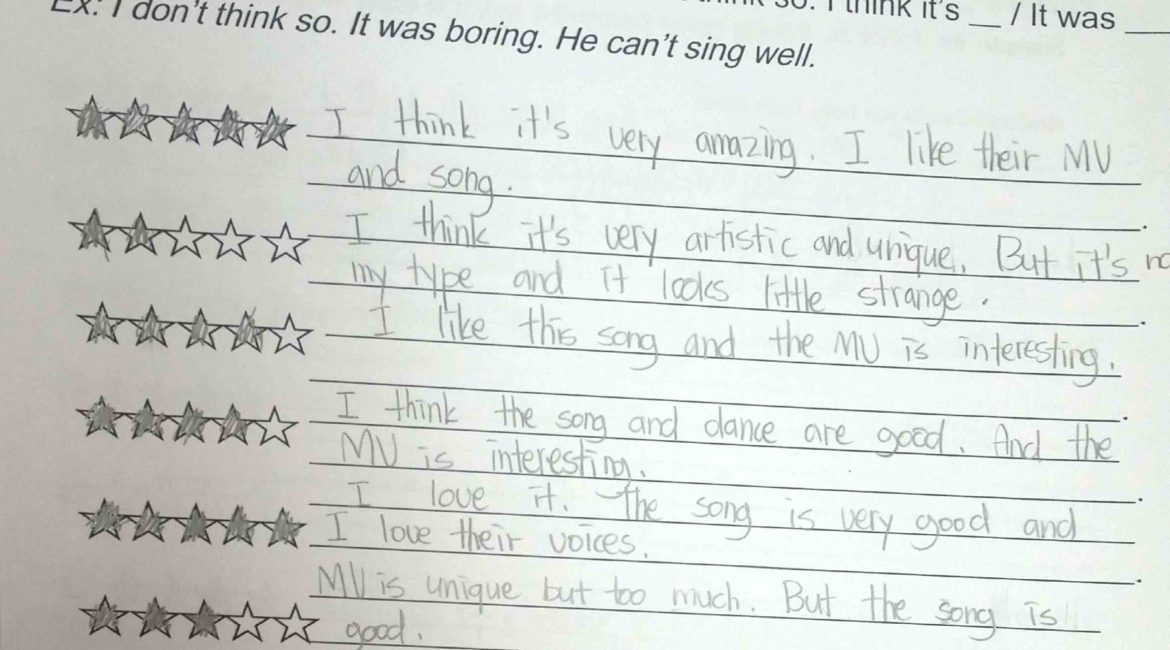 so. I think it's __ / It was __
Ex: I don't think so. It was boring. He can't sing well.
I think it's very amazing. I like their MV
and song.
I think it's very artistic and unique. But it's
my type and it looks little strange.
I like this song and the MV is interesting.
I think the song and dance are good. And the
MV is interesting.
I love it. The song is very good and
I love their voices.
MV is unique but too much. But the song is
good.